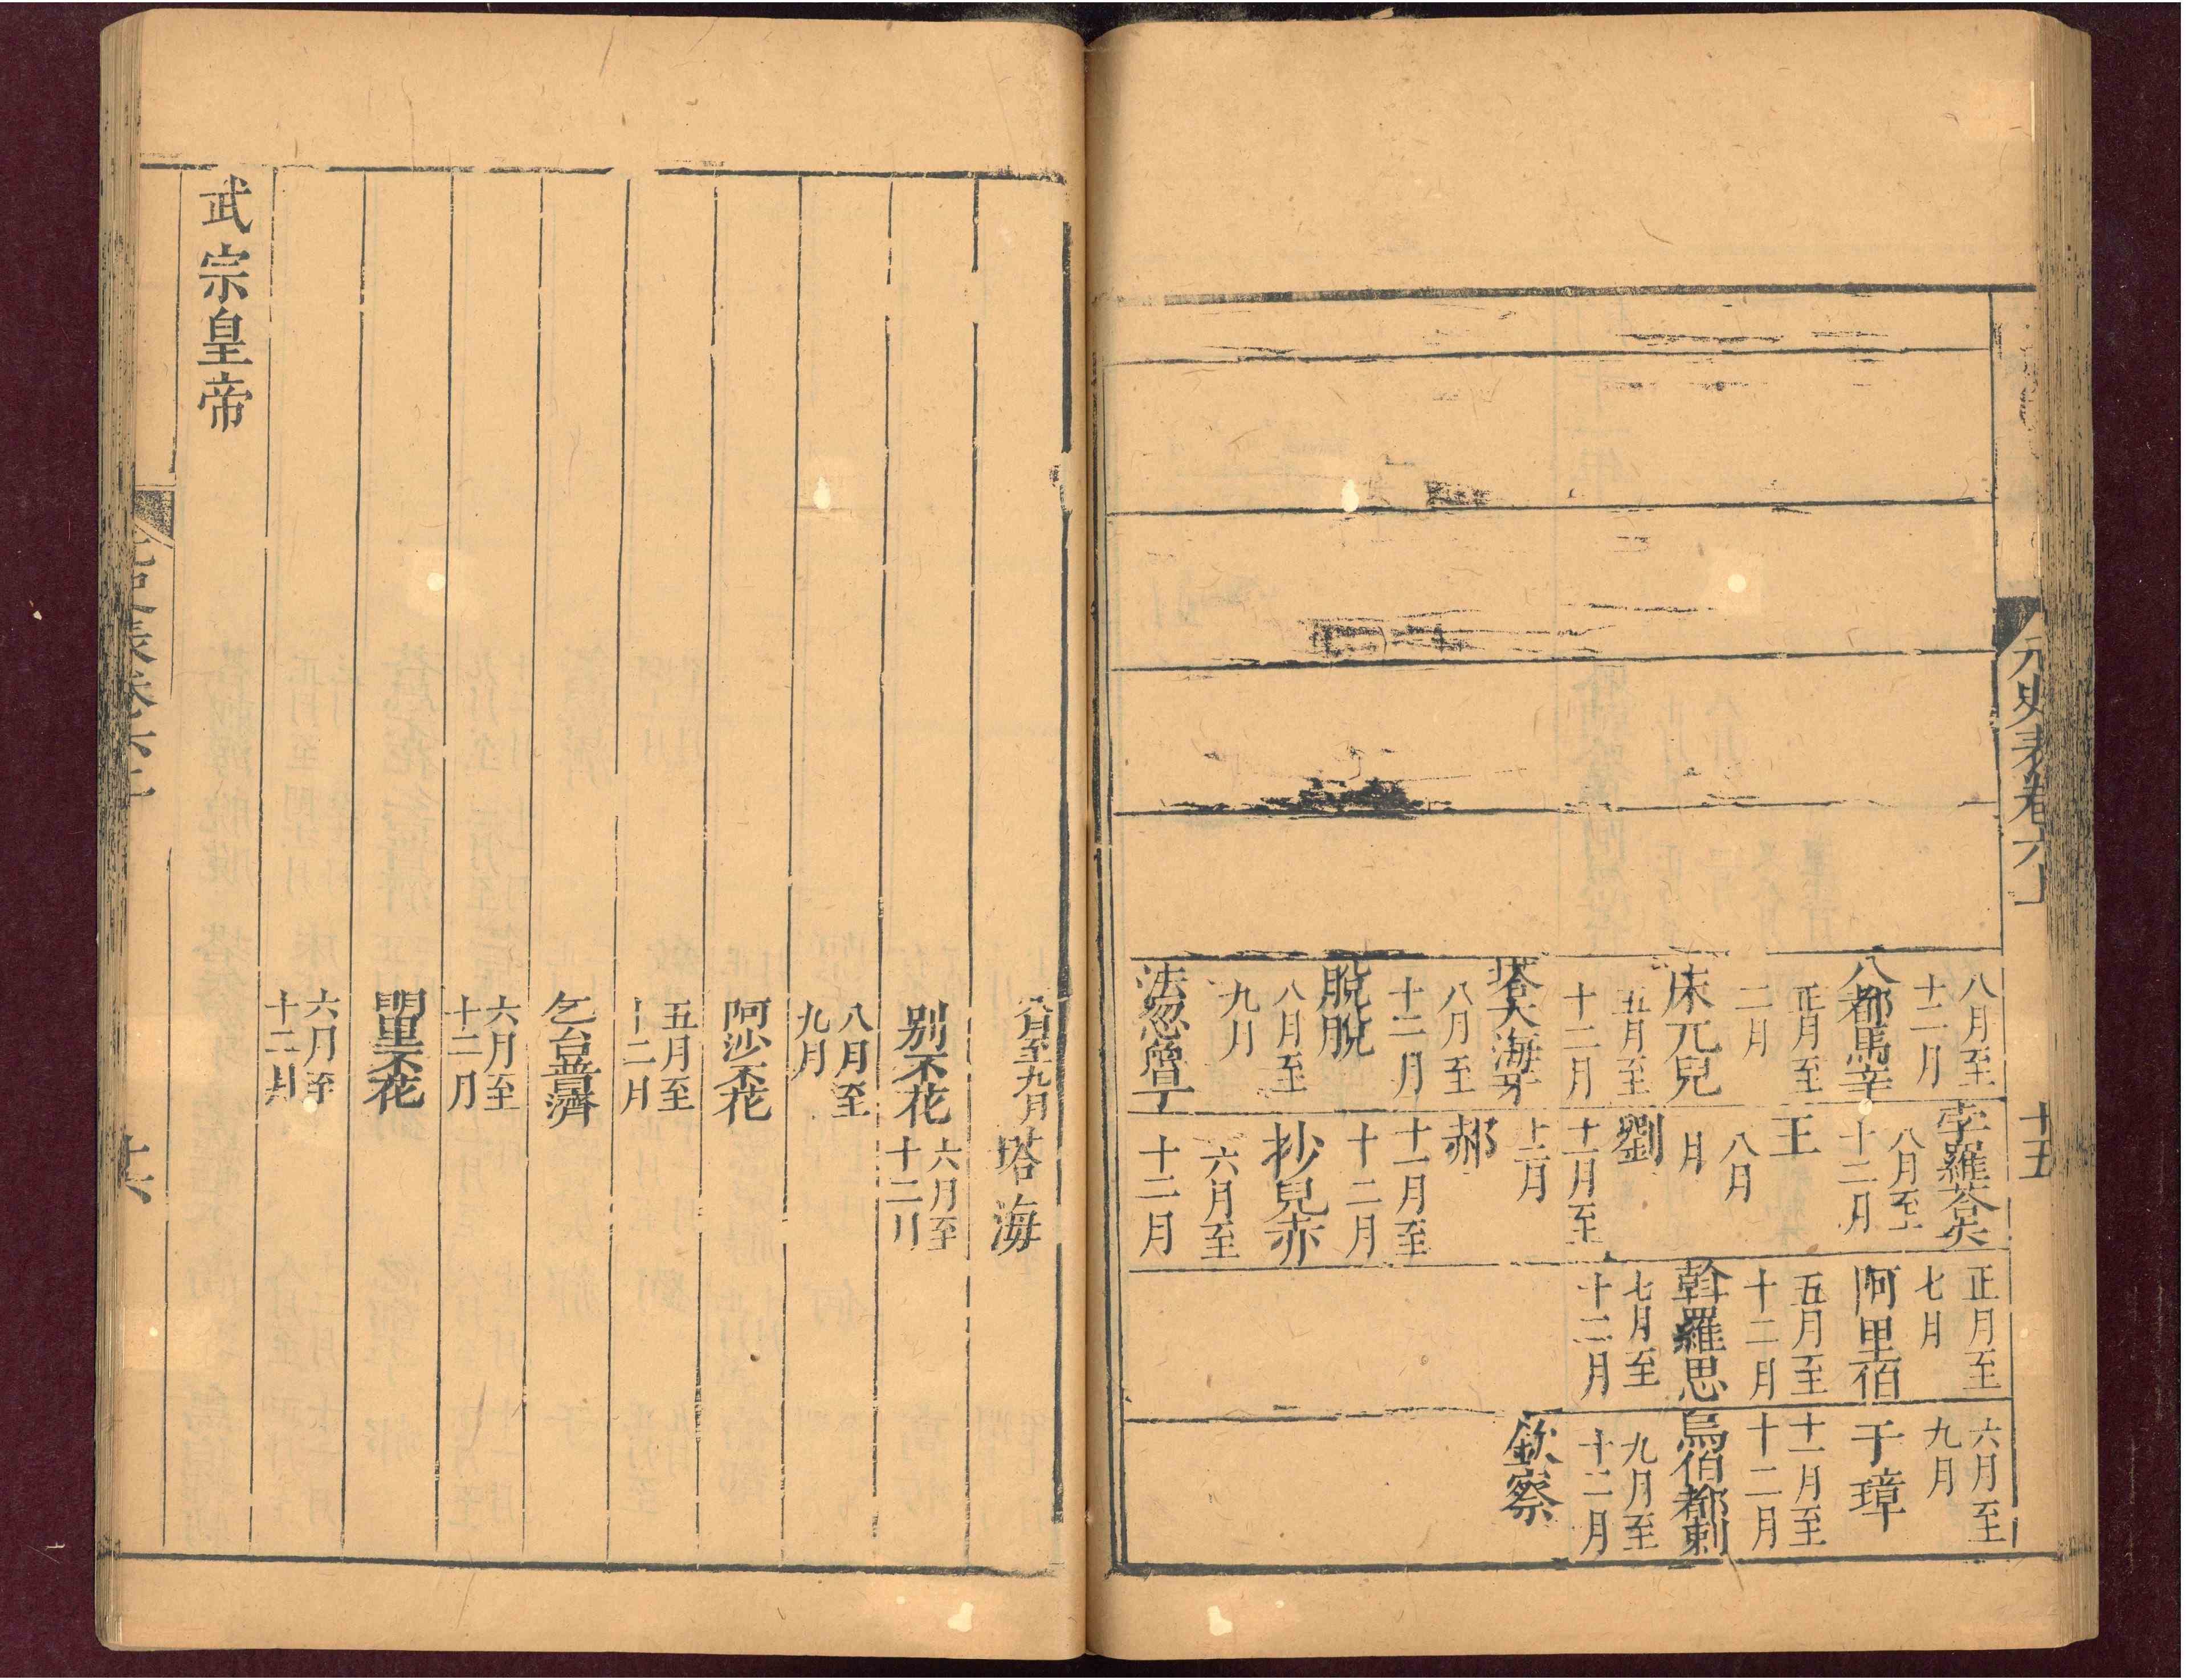 元史表卷六上
十五
八月至
十二月
八都馬辛
正月至
二月
床兀兒
五月至
十二月
塔失海牙
八月至
十二月
脫脫
八月至
九月
法忽魯丁
孛羅荅失
八月至
十二月
王
八月
月
劉
十一月至
十二月
郝
十一月至
十二月
抄兒赤
六月至
十二月
正月至
七月
阿里伯
五月至
十二月
斡羅思
七月至
十二月
六月至
九月
于璋
十一月至
十二月
烏伯都剌
九月至
十二月
欽察
八月至九月
塔海
別不花
六月至
十二月
八月至
九月
阿沙不花
五月至
十二月
乞台普濟
六月至
十二月
闊里不花
六月至
十二月
武宗皇帝
十六